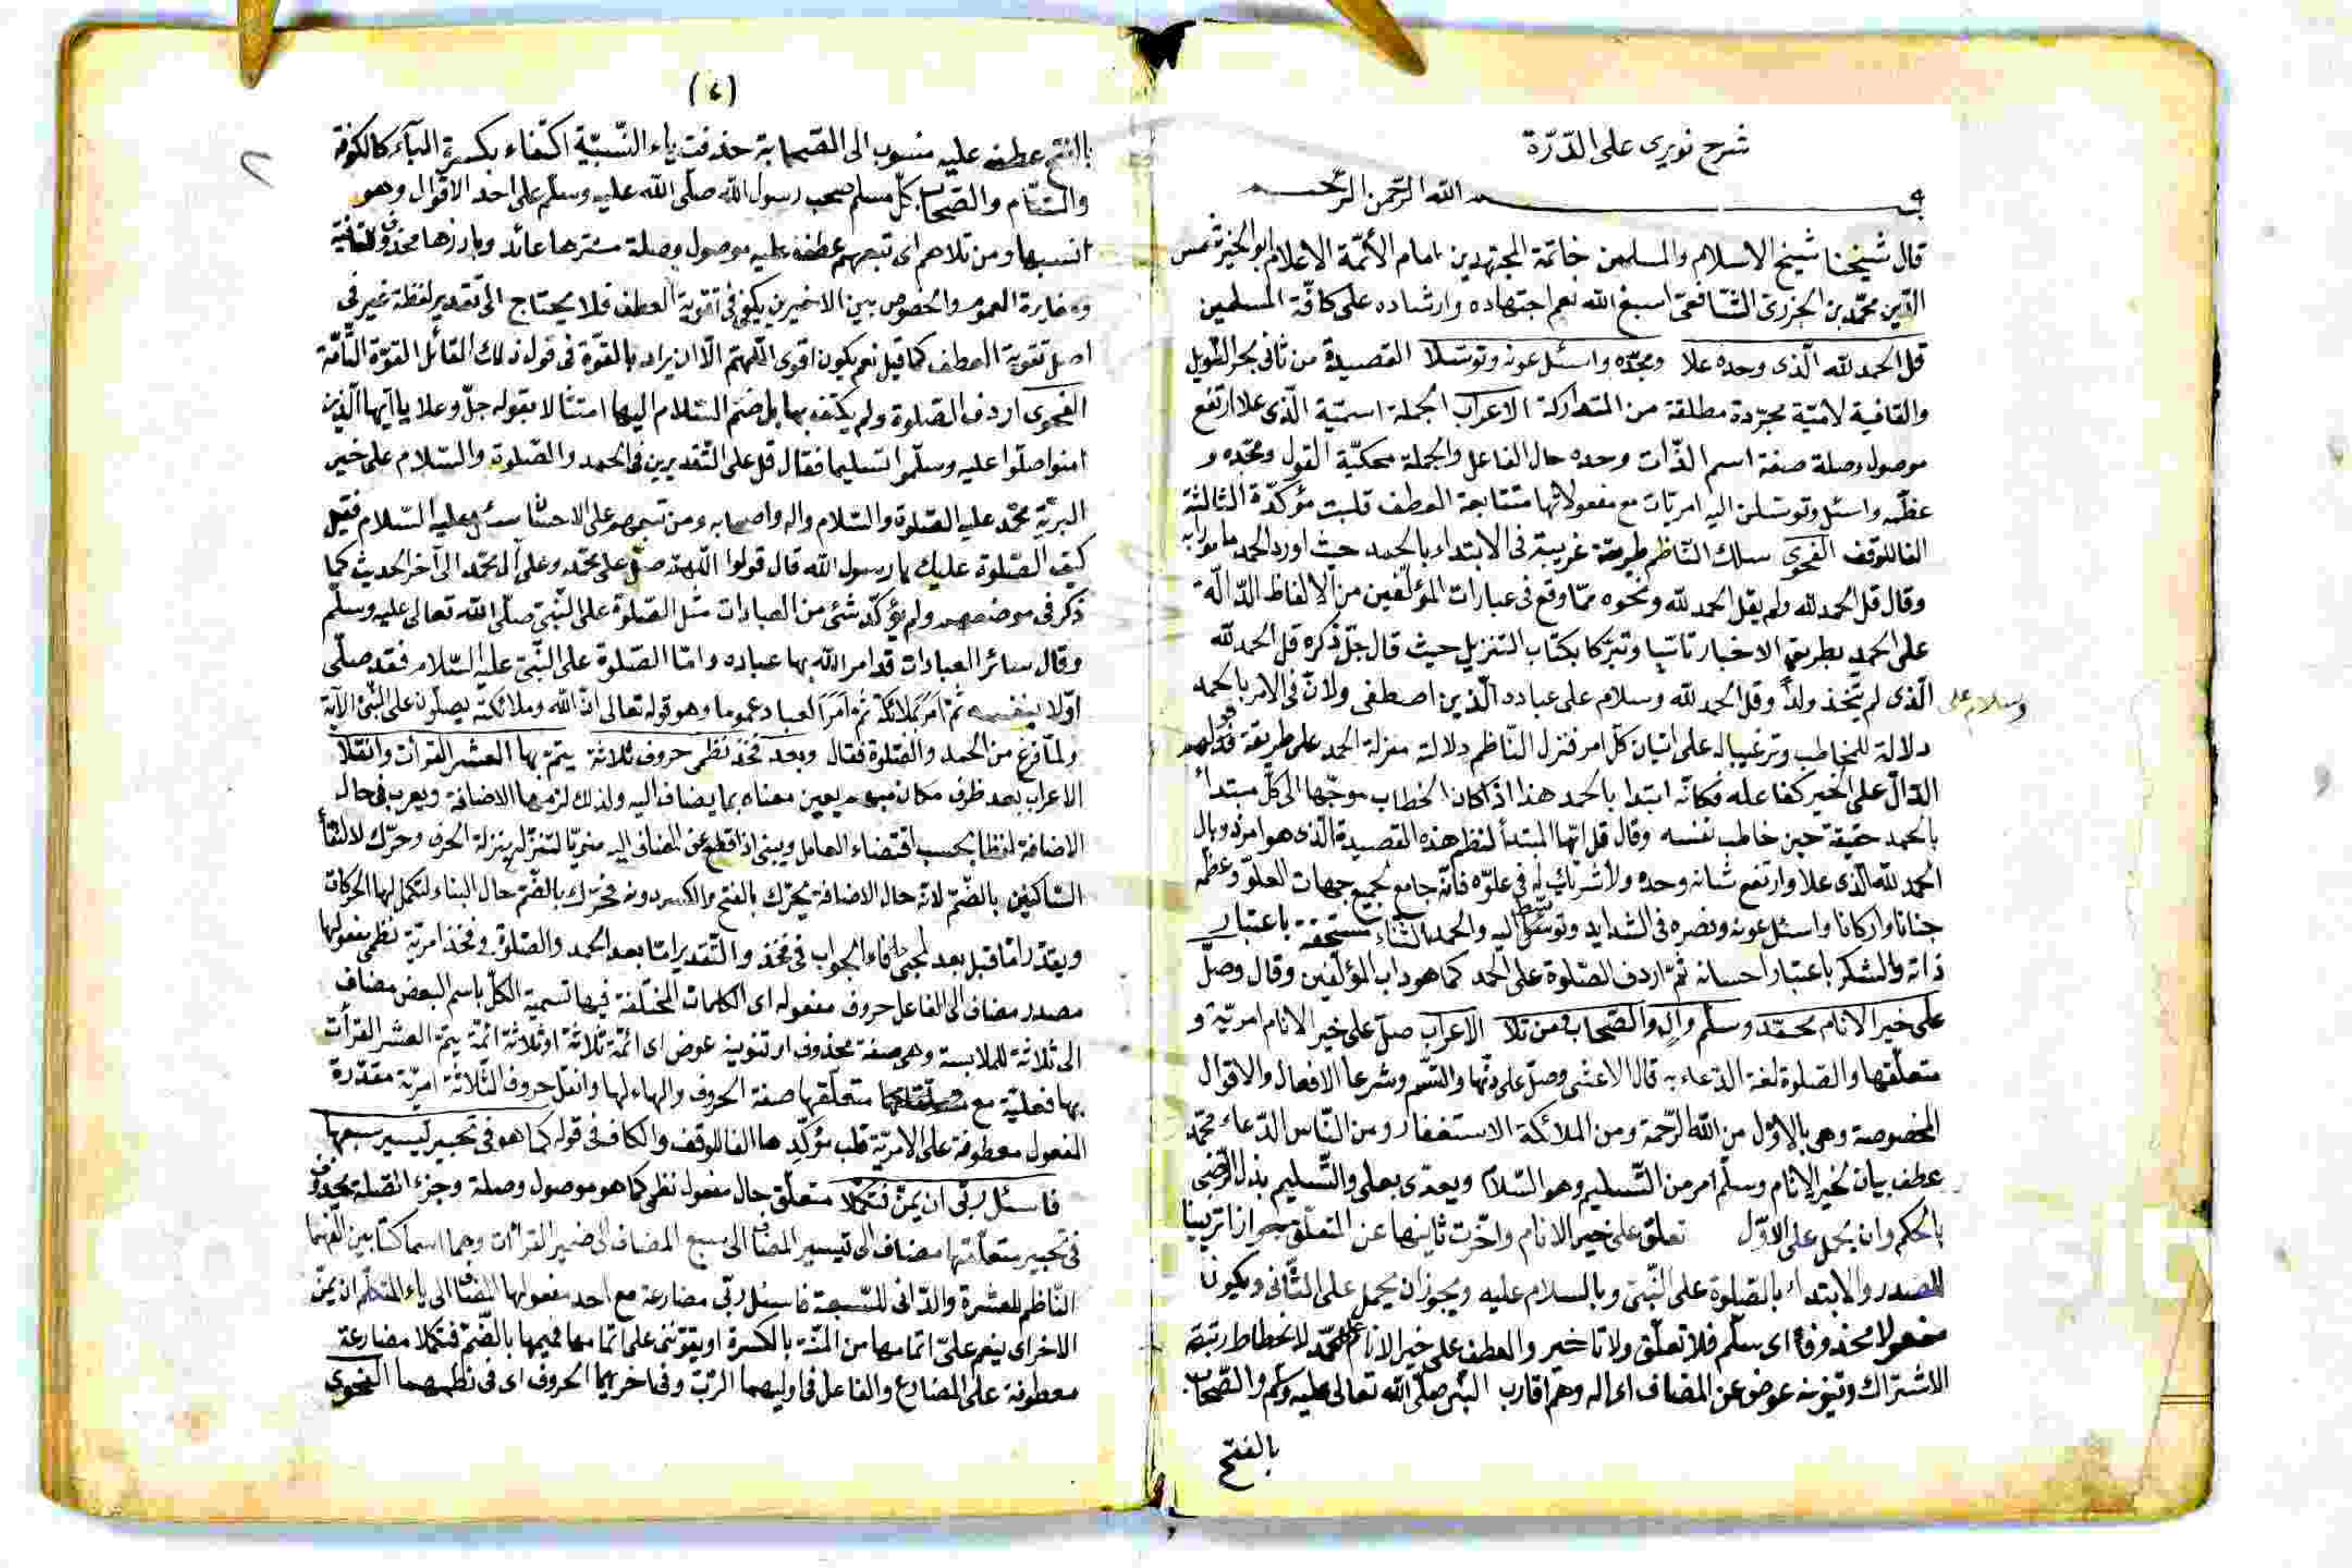 شرح نويرى على الدّرّة
بسم الله الرّحمن الرّحيم
قال شيخنا شيخ الاسلام والمسلمين خاتمة المجتهدين امام الأئمّة الاعلام ابو الخير شمس
الدّين محمّد بن الجزرىّ الشّافعىّ اسبغ الله نعم اجتهاده وارشاده على كافّة المسلمين
قل الحمد لله الّذى وحده علا ومجّده واسئل عونه وتوسّلا القصيدة من ثانى بحر الطّويل
والقافية لاميّة مجرّدة مطلقة من المتداركة الاعراب الجملة اسميّة الّذى علا ارتفع
موصول وصلة صفة اسم الذّات وحده حال الفاعل والجملة محكيّة القول ومجّده و
عظّمه واسئل وتوسّلن اليه امريّات مع مفعولاتها متتابعة العطف قلبت مؤكّدة الثالثة
الفا للوقف الفحوى سلك النّاظم طريقة غريبة فى الابتداء بالحمد حيث اورد الحمد مامورا به
وقال قل الحمد لله ولم يقل الحمد لله ونحوه ممّا وقع فى عبارات المؤلّفين من الالفاظ الدّالّة
على الحمد بطريق الاخبار تاسّيا وتبرّكا بكتاب التنزيل حيث قال جلّ ذكره قل الحمد لله
الّذى لم يتّخذ ولداً وقل الحمد لله وسلام على عباده الّذين اصطفى ولانّ فى الامر بالحمد
وسلام على
دلالة للمخاطب وترغيبا له على اتيان كلّ امر فنزل النّاظم دلالة منزلة الحمد على طريقة قولهم
الدّالّ على الخير كفاعله فكانّه ابتدا بالحمد هذا اذا كان الخطاب موجّها الى كلّ مبتدأ
بالحمد حقيقة حين خاطب نفسه وقال قل ايّها المبتدأ لنظم هذه القصيدة الّذى هو امر ذو بال
الحمد لله الّذى علا وارتفع شانه وحده ولا شريك له فى علوّه فانّه جامع لجميع جهات العلوّ وعظّمه
جنانا واركانا واسئل عونه ونصره فى الشدايد وتوسّل اليه والحمد الثناء مستحقّه باعتبار
ذاته والشكر باعتبار احسانه ثمّ اردف الصّلوة على الحمد كما هو داب المؤلّفين وقال وصلّ
على خير الانام محمّد وسلم وآله والصّحاب ومن تلا الاعراب صلّ على خير الانام امريّة و
متعلّقها والصّلوة لغة الدّعاء به قال الاعشى وصلّ على دنّها وارتسم وشرعا الافعال والاقوال
المخصوصة وهى بالاوّل من الله الرّحمة ومن الملائكة الاستغفار ومن النّاس الدّعاء محمّد
عطف بيان لخير الانام وسلّم امر من التّسليم وهو السّلام ويعدّى بعلى والتّسليم بذل الرّضى
بالحكم وان يحمل على الاوّل تعلّق على خير الانام واخّرت ثانيها عن المتعلّق جوازا تزيينا
للصدر والابتداء بالصّلوة على النّبىّ وبالسلام عليه ويجوز ان يحمل على الثّانى ويكون
مفعولا محذوفا اى سلّم فلا تعلّق ولا تاخير والعطف على خير الانام محمّد لانحطاط رتبة
الاشتراك وتنوينه عوض عن المضاف اى اله وهم اقارب النّبى صلّى الله تعالى عليه وسلّم والصّحاب
بالفتح
(٤)
٢
بالفتح عطف عليه منسوب الى الصّحابة حذفت ياء النّسبيّة اكتفاء بكسرة الباء كالكوف
والشّام والصّحاب كلّ مسلم صحب رسول الله صلّى الله عليه وسلّم على احد الاقوال وهو
انسبها ومن تلاهم اى تبعهم عطف عليه موصول وصلة مسترها عائد وبارزها محذوف
ومغايرة العموم والخصوص بين الاخيرين يكفى فى تقوية العطف فلا يحتاج الى تقدير لفظة غير فى
اصل تقوية العطف كما قيل نعم يكون اقوى اللّهمّ الّا ان يراد بالقوّة فى قول ذلك القائل القوّة التّامّة
الفحوى اردف الصّلوة ولم يكتف بها بل ضمّ السّلام اليها امتثالا بقوله جلّ وعلا يا ايّها الّذين
امنوا صلّوا عليه وسلّموا تسليما فقال قل على التّقديرين فى الحمد والصّلوة والسّلام على خير
البريّة محمّد عليه الصّلوة والسّلام واله واصحابه ومن تبعهم على الاحسان سئل عليه السّلام فقيل
كيف الصّلوة عليك يا رسول الله قال قولوا اللّهمّ صلّ على محمّد وعلى آل محمّد الى آخر الحديث كما
ذكر فى موضعه ولم يؤكّد شئ من العبادات مثل الصّلوة على النّبىّ صلّى الله تعالى عليه وسلّم
وقال سائر العبادات قد امر الله بها عباده وامّا الصّلوة على النّبىّ عليه السّلام فقد صلّى
اوّلا بنفسه ثمّ امر ملائكته ثمّ امر العباد عموما وهو قوله تعالى انّ الله وملائكته يصلّون على النّبىّ الآية
ولمّا فرغ من الحمد والصّلوة فقال وبعد فخذ نظمى حروف ثلاثة يتمّ بها العشر القرأت وانقلا
الاعراب بعد ظرف مكان مبهم يعين معناه بما يضاف اليه ولذلك لزمها الاضافة ويعرب فى حال
الاضافة لفظا بحسب اقتضاء العامل ويبنى اذا قطع عن المضاف اليه منويّا لتنزّله بمنزلة الحرف وحرّك لالتقاء
السّاكنين بالضّمّ لانه حال الاضافة يحرّك بالفتح والكسر دونه فحرّك بالضّم حال البناء لتكمل لها الحركات
ويقدّر امّا قبل بعد لمجئ فاء الجواب فى فخذ والتّقدير امّا بعد الحمد والصّلوة فخذ امريّة نظمى مفعولها
مصدر مضاف الى الفاعل حروف مفعوله اى الكلمات المختلفة فيها تسمية الكلّ باسم البعض مضاف
الى ثلاثة للملابسة وهى صفة محذوف او تنوينه عوض اى ائمّة ثلاثة او ثلاثة ائمّة يتمّ العشر القرأت
بها فعليّة مع متعلّقها صفة الحروف والهاء لها وانقل حروف الثّلاثة امريّة مقدّرة
المفعول معطوفة على الامريّة قلب مؤكّدها الفا للوقف والكاف فى قوله كما هو فى تحبير تيسير سبعها
فاسئل ربّى ان يمنّ فتكملا متعلّق حال مفعول نظمى كما هو موصول وصلة وجزء الصّلة محذوف
فى تحبير متعلّقها مضاف الى تيسير المضاف الى سبع المضاف الى ضمير القرائات وهما اسما كتابين الّفهما
النّاظم للعشرة والدّانى للسّبعة فاسئل ربّى مضارعة مع احد مفعولها المضاف الى ياء المتكلّم ان يمنّ
الاخر اى ينعم علىّ اتمامها من المنّة بالكسرة او يقوّنى على اتمامها فيهما بالضّمّ فتكملا مضارعة
معطوفة على المضارع والفاعل فى اوليهما الرّبّ وفى اخريهما الحروف اى فى نظمهما الفحوى